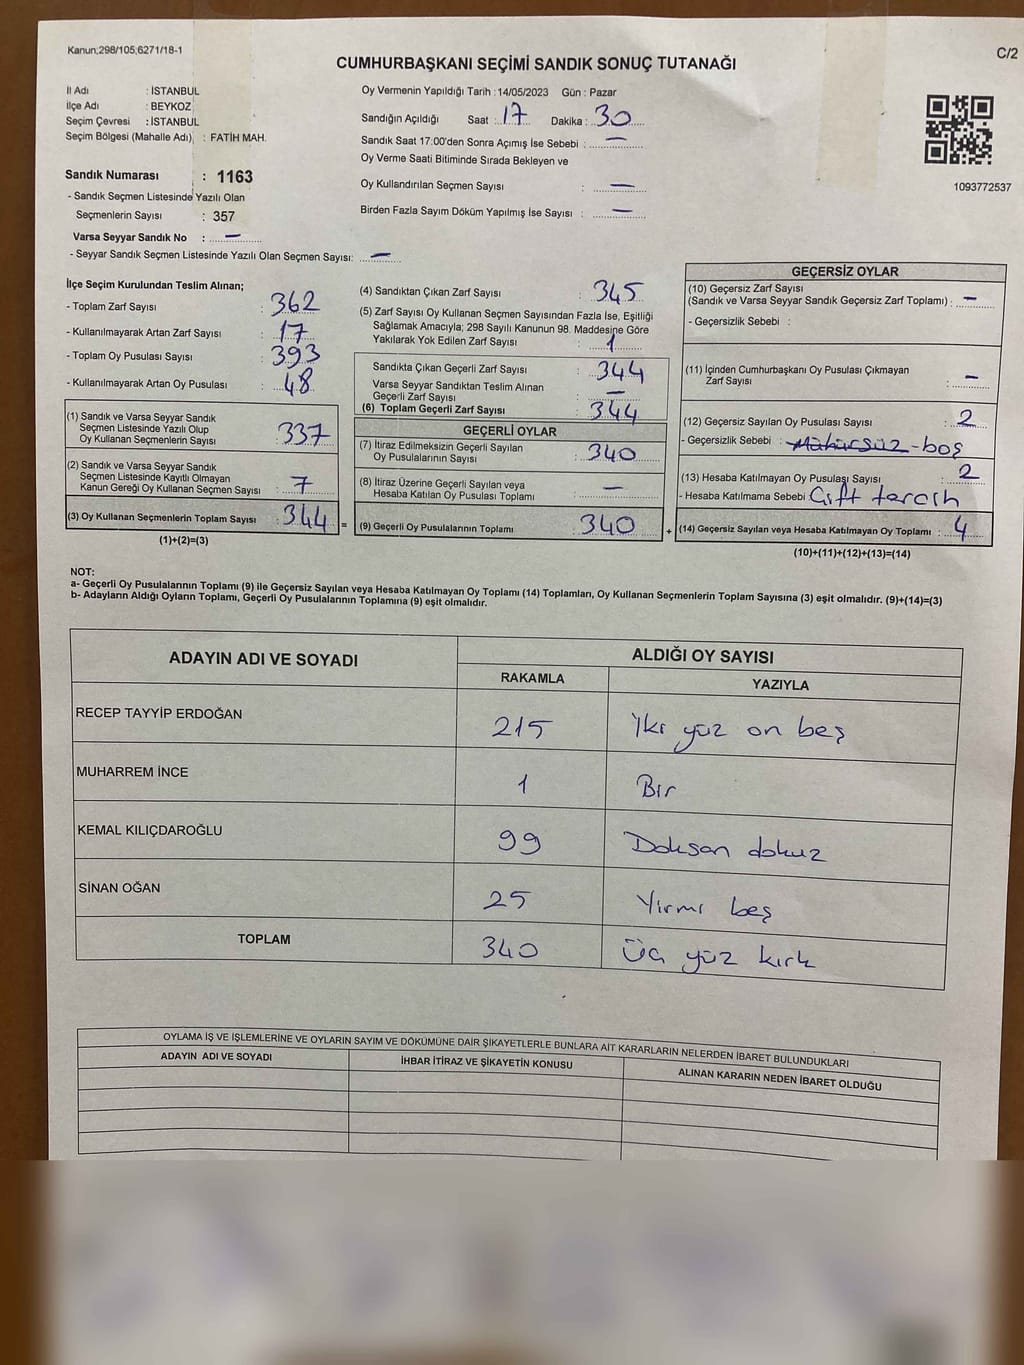 Kanun;298/105,6271/18-1
C/2
CUMHURBAŞKANI SEÇİMİ SANDIK SONUÇ TUTANAĞI
İl Adı : İSTANBUL
İlçe Adı : BEYKOZ
Seçim Çevresi : İSTANBUL
Seçim Bölgesi (Mahalle Adı) : FATİH MAH.
Sandık Numarası : 1163
- Sandık Seçmen Listesinde Yazılı Olan
Seçmenlerin Sayısı : 357
Varsa Seyyar Sandık No : —
- Seyyar Sandık Seçmen Listesinde Yazılı Olan Seçmen Sayısı: —
Oy Vermenin Yapıldığı Tarih : 14/05/2023 Gün : Pazar
Sandığın Açıldığı Saat : 17 Dakika : 30
Sandık Saat 17:00'den Sonra Açımış İse Sebebi : —
Oy Verme Saati Bitiminde Sırada Bekleyen ve
Oy Kullandırılan Seçmen Sayısı : —
Birden Fazla Sayım Döküm Yapılmış İse Sayısı : —
1093772537
İlçe Seçim Kurulundan Teslim Alınan;
- Toplam Zarf Sayısı : 362
- Kullanılmayarak Artan Zarf Sayısı : 17
- Toplam Oy Pusulası Sayısı : 393
- Kullanılmayarak Artan Oy Pusulası : 48
(1) Sandık ve Varsa Seyyar Sandık
Seçmen Listesinde Yazılı Olup
Oy Kullanan Seçmenlerin Sayısı : 337
(2) Sandık ve Varsa Seyyar Sandık
Seçmen Listesinde Kayıtlı Olmayan
Kanun Gereği Oy Kullanan Seçmen Sayısı : 7
(3) Oy Kullanan Seçmenlerin Toplam Sayısı : 344 =
(1)+(2)=(3)
(4) Sandıktan Çıkan Zarf Sayısı : 345
(5) Zarf Sayısı Oy Kullanan Seçmen Sayısından Fazla İse, Eşitliği
Sağlamak Amacıyla; 298 Sayılı Kanunun 98. Maddesine Göre
Yakılarak Yok Edilen Zarf Sayısı : 1
Sandıkta Çıkan Geçerli Zarf Sayısı : 344
Varsa Seyyar Sandıktan Teslim Alınan
Geçerli Zarf Sayısı : —
(6) Toplam Geçerli Zarf Sayısı : 344
GEÇERLİ OYLAR
(7) İtiraz Edilmeksizin Geçerli Sayılan
Oy Pusulalarının Sayısı : 340
(8) İtiraz Üzerine Geçerli Sayılan veya
Hesaba Katılan Oy Pusulası Toplamı : —
(9) Geçerli Oy Pusulalarının Toplamı : 340 +
GEÇERSİZ OYLAR
(10) Geçersiz Zarf Sayısı
(Sandık ve Varsa Seyyar Sandık Geçersiz Zarf Toplamı) : —
- Geçersizlik Sebebi :
(11) İçinden Cumhurbaşkanı Oy Pusulası Çıkmayan
Zarf Sayısı : —
(12) Geçersiz Sayılan Oy Pusulası Sayısı : 2
- Geçersizlik Sebebi : Mühürsüz - boş
(13) Hesaba Katılmayan Oy Pusulası Sayısı : 2
- Hesaba Katılmama Sebebi : Çift tercih
(14) Geçersiz Sayılan veya Hesaba Katılmayan Oy Toplamı : 4
(10)+(11)+(12)+(13)=(14)
NOT:
a- Geçerli Oy Pusulalarının Toplamı (9) ile Geçersiz Sayılan veya Hesaba Katılmayan Oy Toplamı (14) Toplamları, Oy Kullanan Seçmenlerin Toplam Sayısına (3) eşit olmalıdır. (9)+(14)=(3)
b- Adayların Aldığı Oyların Toplamı, Geçerli Oy Pusulalarının Toplamına (9) eşit olmalıdır.
ADAYIN ADI VE SOYADI
ALDIĞI OY SAYISI
RAKAMLA YAZIYLA
RECEP TAYYİP ERDOĞAN 215 İki yüz on beş
MUHARREM İNCE 1 Bir
KEMAL KILIÇDAROĞLU 99 Doksan dokuz
SİNAN OĞAN 25 Yirmi beş
TOPLAM 340 Üç yüz kırk
OYLAMA İŞ VE İŞLEMLERİNE VE OYLARIN SAYIM VE DÖKÜMÜNE DAİR ŞİKAYETLERLE BUNLARA AİT KARARLARIN NELERDEN İBARET BULUNDUKLARI
ADAYIN ADI VE SOYADI İHBAR İTİRAZ VE ŞİKAYETİN KONUSU ALINAN KARARIN NEDEN İBARET OLDUĞU